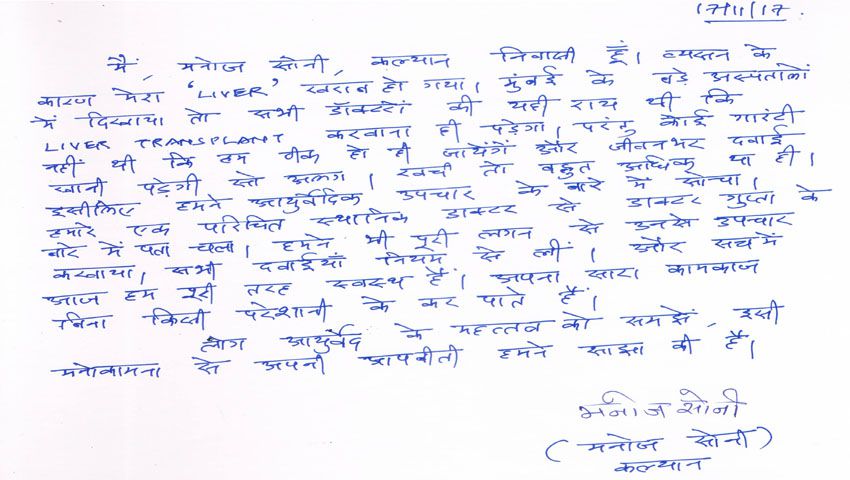 17/11/17.
मैं, मनोज सोनी, कल्यान निवासी हूँ। व्यसन के
कारण मेरा 'LIVER' खराब हो गया। मुंबई के बड़े अस्पतालों
में दिखाया तो सभी डॉक्टरों की यही राय थी कि
LIVER TRANSPLANT करवाना ही पड़ेगा। परंतु कोई गारंटी
नहीं थी कि हम ठीक हो ही जायेंगे और जीवनभर दवाई
खानी पड़ेगी सो अलग। खर्चा तो बहुत अधिक था ही।
इसीलिए हमने आयुर्वेदिक उपचार के बारे में सोचा।
हमारे एक परिचित स्थानिक डाक्टर से डाक्टर गुप्ता के
बारे में पता चला। हमने भी पूरी लगन से उनसे उपचार
करवाया, सभी दवाईयाँ नियम से लीं। और सच में
आज हम पूरी तरह स्वस्थ हैं। अपना सारा कामकाज
बिना किसी परेशानी के कर पाते हैं।
लोग आयुर्वेद के महत्तव को समझें, इसी
मनोकामना से अपनी आपबीती हमने साझा की है।
मनोज सोनी
(मनोज सोनी)
कल्यान